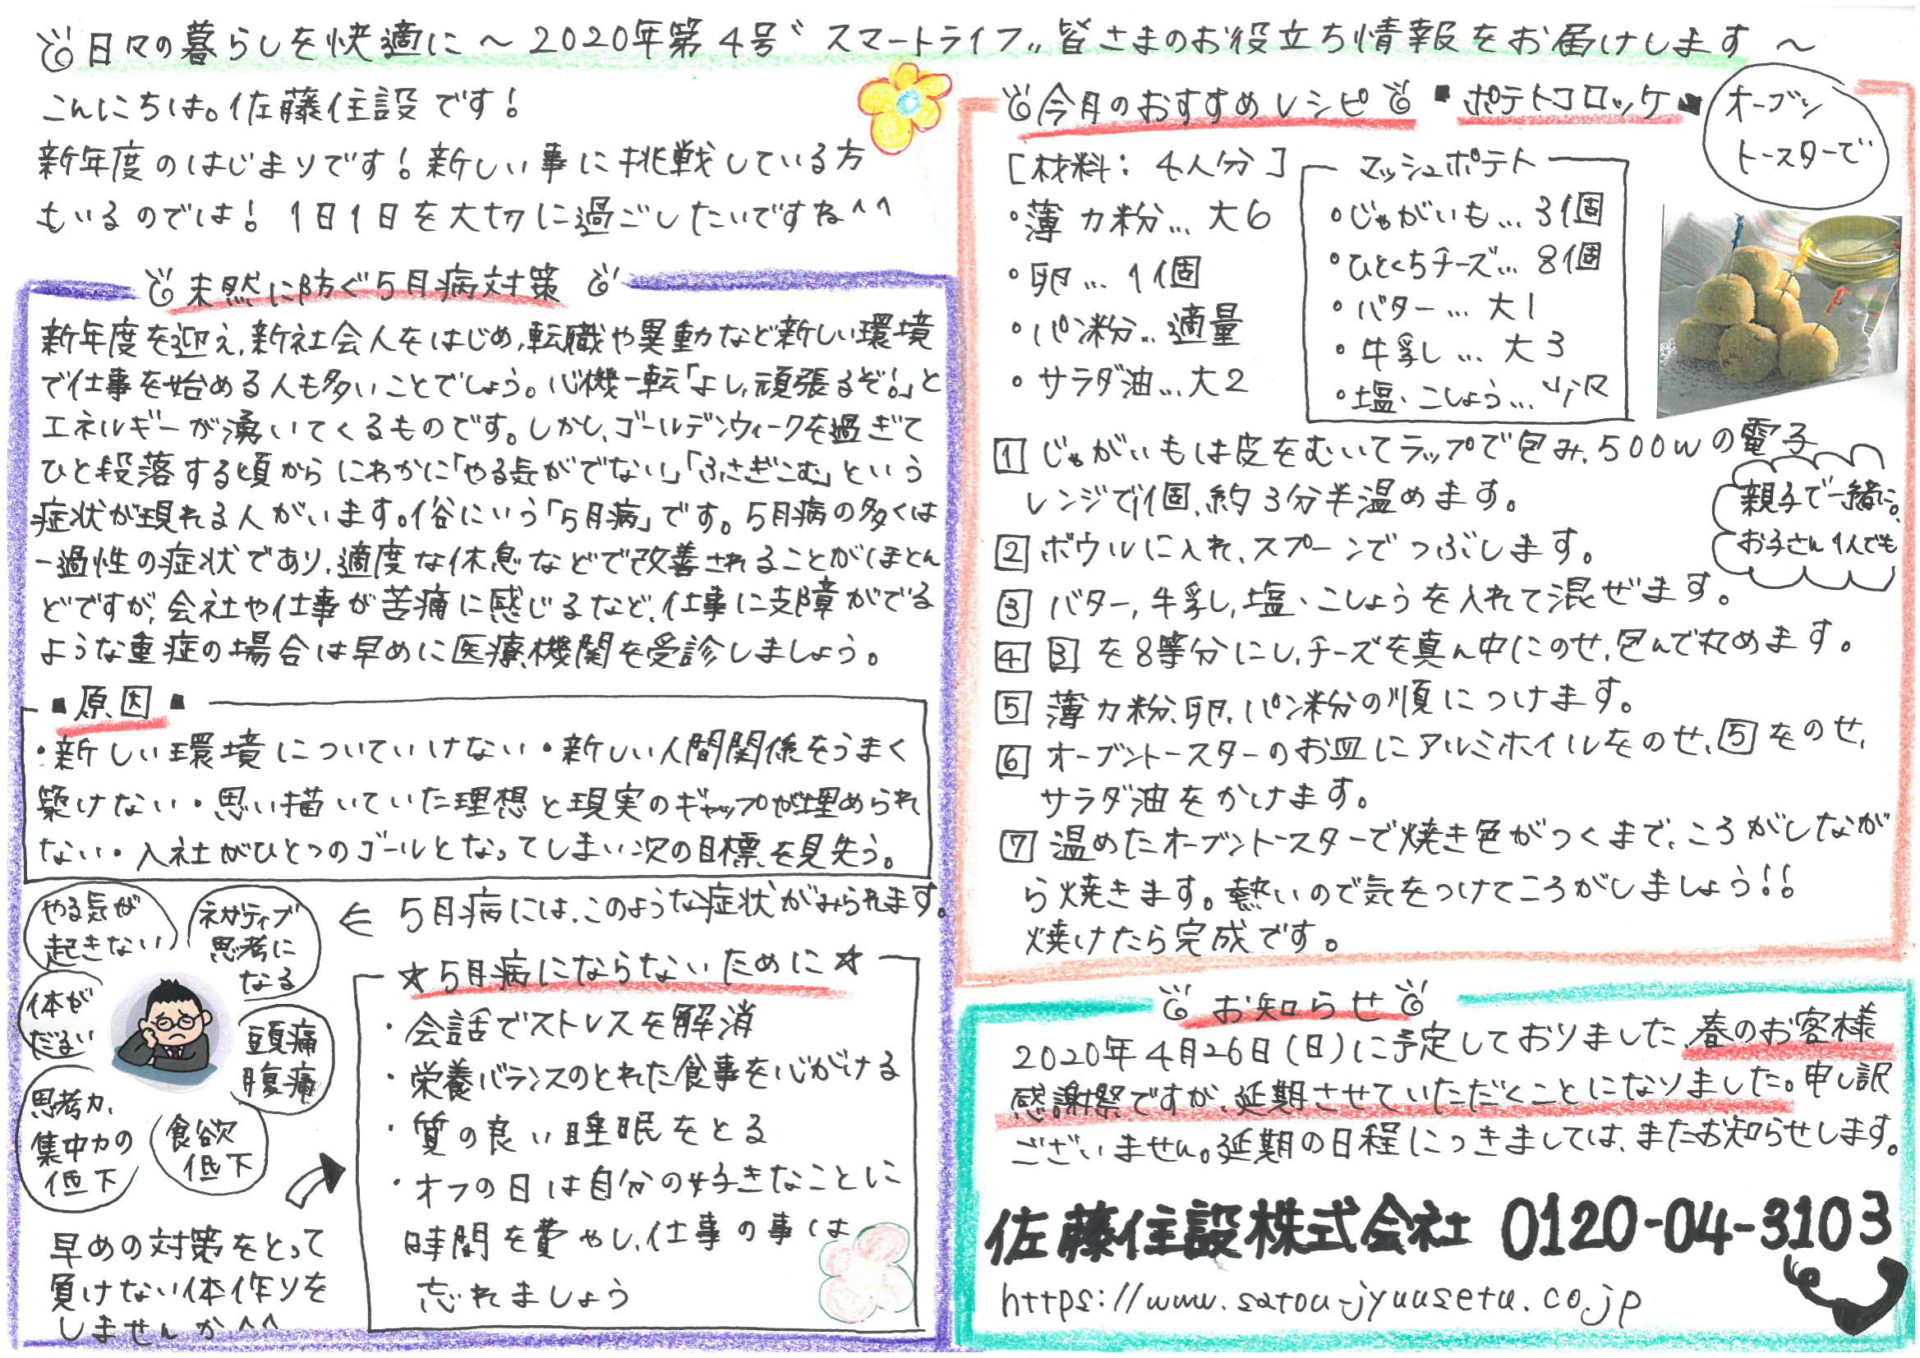 日々の暮らしを快適に～2020年第4号〝スマートライフ〟皆さまのお役立ち情報をお届けします～
こんにちは。佐藤住設です!
新年度のはじまりです!新しい事に挑戦している方
もいるのでは!1日1日を大切に過ごしたいですね^^
未然に防ぐ5月病対策
新年度を迎え、新社会人をはじめ、転職や異動など新しい環境
で仕事を始める人も多いことでしょう。心機一転「よし、頑張るぞ!」と
エネルギーが湧いてくるものです。しかし、ゴールデンウィークを過ぎて
ひと段落する頃からにわかに「やる気がでない」「ふさぎこむ」という
症状が現れる人がいます。俗にいう「5月病」です。5月病の多くは
一過性の症状であり、適度な休息などで改善されることがほとん
どですが、会社や仕事が苦痛に感じるなど、仕事に支障がでる
ような重症の場合は早めに医療機関を受診しましょう。
■原因■
・新しい環境についていけない・新しい人間関係をうまく
築けない・思い描いていた理想と現実のギャップが埋められ
ない・入社がひとつのゴールとなってしまい次の目標を見失う。
やる気が
起きない
ネガティブ
思考に
なる
⇐ 5月病には、このような症状がみられます。
体が
だるい
頭痛
腹痛
思考力、
集中力の
低下
食欲
低下
早めの対策をとって
負けない体作りを
しませんか^^
☆5月病にならないために☆
・会話でストレスを解消
・栄養バランスのとれた食事を心がける
・質の良い睡眠をとる
・オフの日は自分の好きなことに
時間を費やし、仕事の事は
忘れましょう
今月のおすすめレシピ ■ポテトコロッケ■
オーブン
トースターで
[材料:4人分]
・薄力粉…大6
・卵…1個
・パン粉…適量
・サラダ油…大2
マッシュポテト
・じゃがいも…3個
・ひとくちチーズ…8個
・バター…大1
・牛乳…大3
・塩・こしょう…少々
1 じゃがいもは皮をむいてラップで包み、500Wの電子
レンジで1個、約3分半温めます。
親子で一緒に。
お子さん1人でも
2 ボウルに入れ、スプーンでつぶします。
3 バター、牛乳、塩・こしょうを入れて混ぜます。
4 3を8等分にし、チーズを真ん中にのせ、包んで丸めます。
5 薄力粉、卵、パン粉の順につけます。
6 オーブントースターのお皿にアルミホイルをのせ、5をのせ、
サラダ油をかけます。
7 温めたオーブントースターで焼き色がつくまで、ころがしなが
ら焼きます。熱いので気をつけてころがしましょう!!
焼けたら完成です。
お知らせ
2020年4月26日(日)に予定しておりました春のお客様
感謝祭ですが、延期させていただくことになりました。申し訳
ございません。延期の日程につきましては、またお知らせします。
佐藤住設株式会社 0120-04-3103
https://www.satou-jyuusetu.co.jp